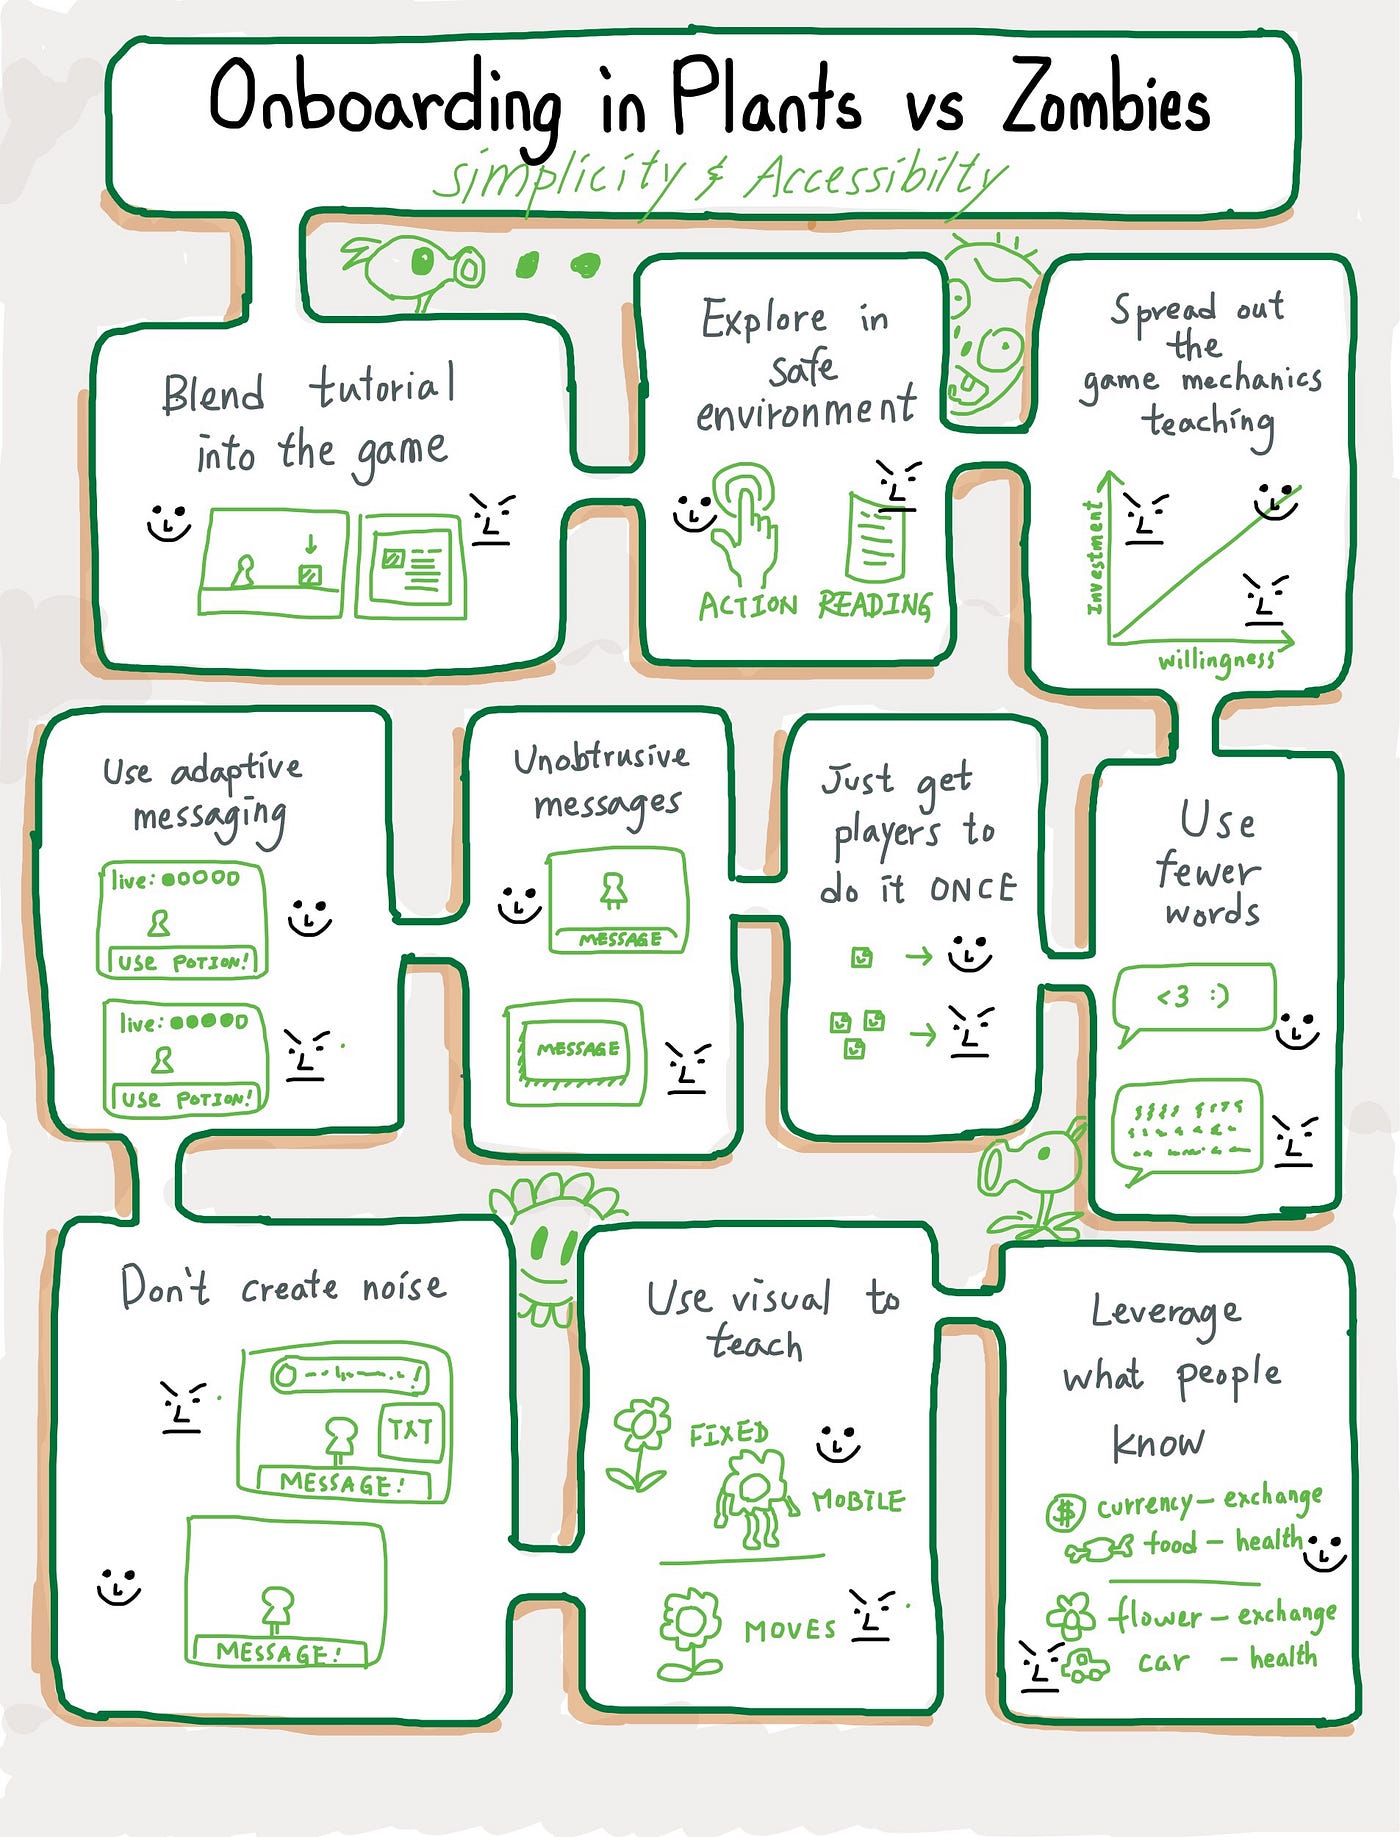 Onboarding in Plants vs Zombies
simplicity & Accessibilty
Blend tutorial
into the game
Explore in
safe
environment
ACTION READING
Spread out
the
game mechanics
teaching
Investment
willingness
Use
fewer
words
<3 :)
Just get
players to
do it ONCE
Unobtrusive
messages
MESSAGE
MESSAGE
Use adaptive
messaging
live:
USE POTION!
live:
USE POTION!
Don't create noise
TXT
MESSAGE!
MESSAGE!
Use visual to
teach
FIXED
MOBILE
MOVES
Leverage
what people
know
$ currency – exchange
food – health
flower – exchange
car – health